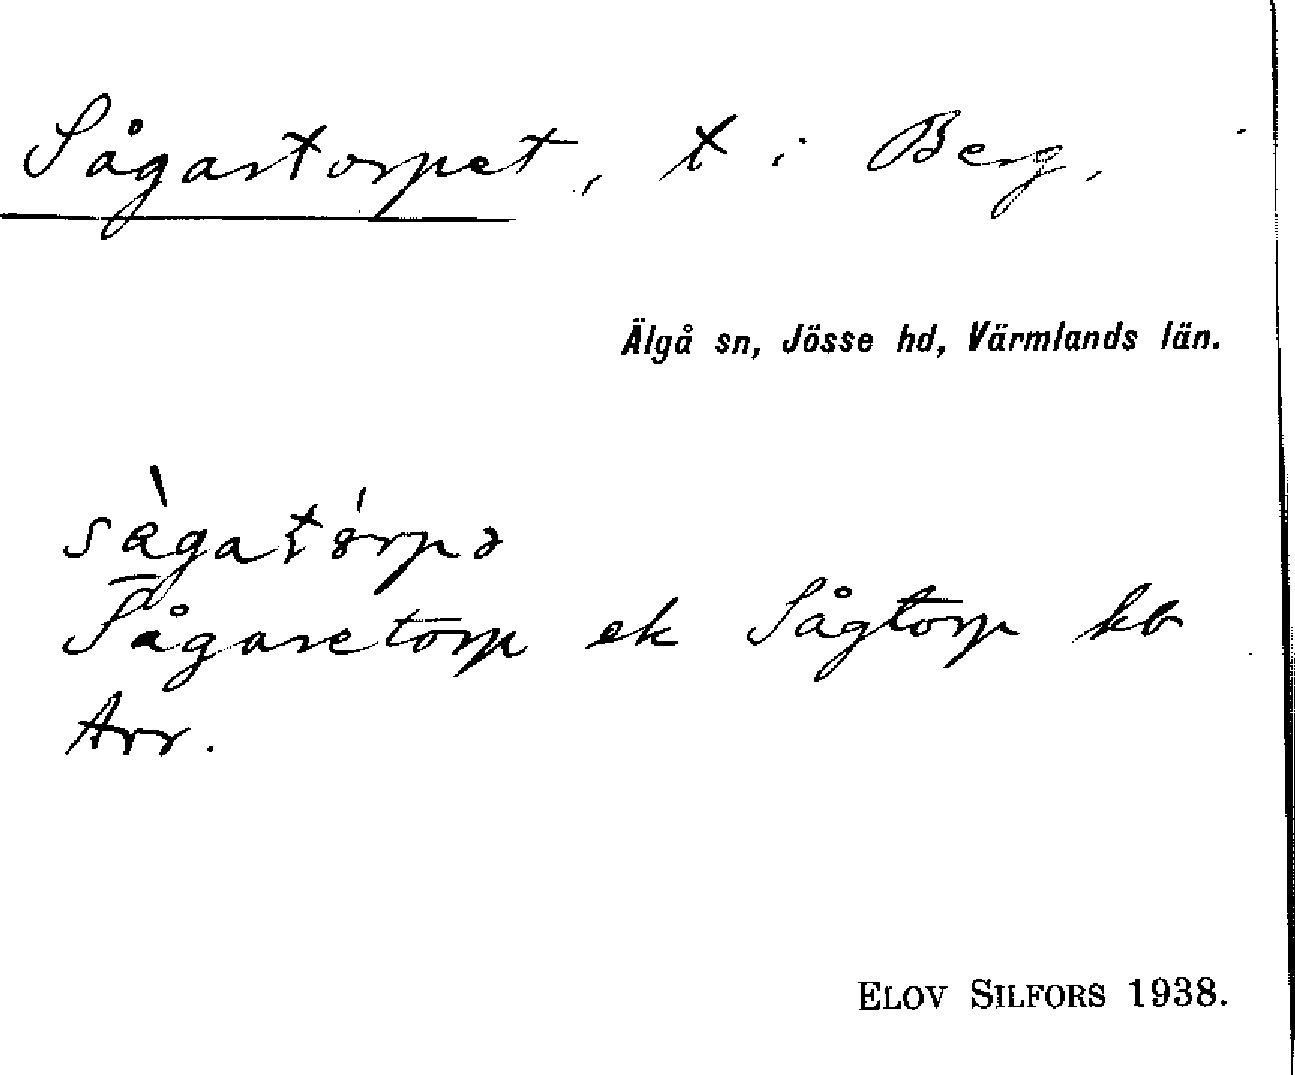 Sågartorpet, t i Berg.
Älgå sn, Jösse hd, Värmlands län.
Sågaretorp ek Sågtorp kb
Arr.
ELOV SILFORS 1938.